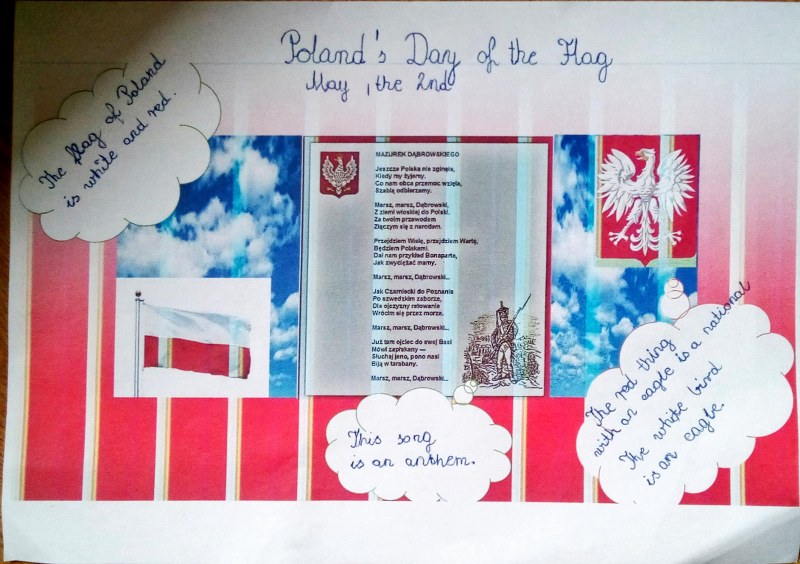 Poland's Day of the Flag
May, the 2nd
The flag of Poland
is white and red.
MAZUREK DĄBROWSKIEGO
Jeszcze Polska nie zginęła,
Kiedy my żyjemy.
Co nam obca przemoc wzięła,
Szablą odbierzemy.
Marsz, marsz, Dąbrowski,
Z ziemi włoskiej do Polski.
Za twoim przewodem
Złączym się z narodem.
Przejdziem Wisłę, przejdziem Wartę,
Będziem Polakami.
Dał nam przykład Bonaparte,
Jak zwyciężać mamy.
Marsz, marsz, Dąbrowski...
Jak Czarniecki do Poznania
Po szwedzkim zaborze,
Dla ojczyzny ratowania
Wrócim się przez morze.
Marsz, marsz, Dąbrowski...
Już tam ojciec do swej Basi
Mówi zapłakany —
Słuchaj jeno, pono nasi
Biją w tarabany.
Marsz, marsz, Dąbrowski...
This song
is an anthem.
The red thing
with an eagle is a national
The white bird
is an eagle.